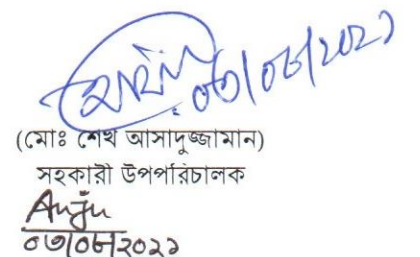 ০৩/০৮/২০২১
(মোঃ শেখ আসাদুজ্জামান)
সহকারী উপপরিচালক
Anju
০৩/০৮/২০২১